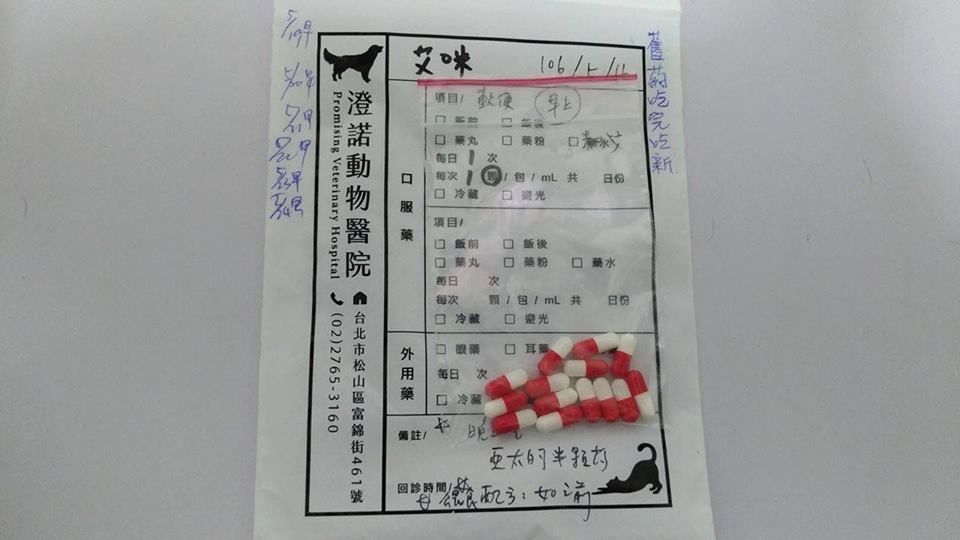 5/19早
5/20早
舊葯吃完吃新
澄諾動物醫院
Promising Veterinary Hospital
台北市松山區富錦街461號
(02)2765-3160
艾咪 106/5/12
口服藥
項目/ 軟便 早上
□ 飯前 □ 飯後
□ 藥丸 □ 藥粉 □ 藥水
每日 1 次
每次 1 顆/包/mL 共 日份
□ 冷藏 □ 避光
項目/
□ 飯前 □ 飯後
□ 藥丸 □ 藥粉 □ 藥水
每日 次
每次 顆/包/mL 共 日份
□ 冷藏 □ 避光
外用藥
□ 眼藥 □ 耳藥
每日 次
□ 冷藏
備註/ 晚上
亞太的半顆葯
回診時間/ 配方:如之前